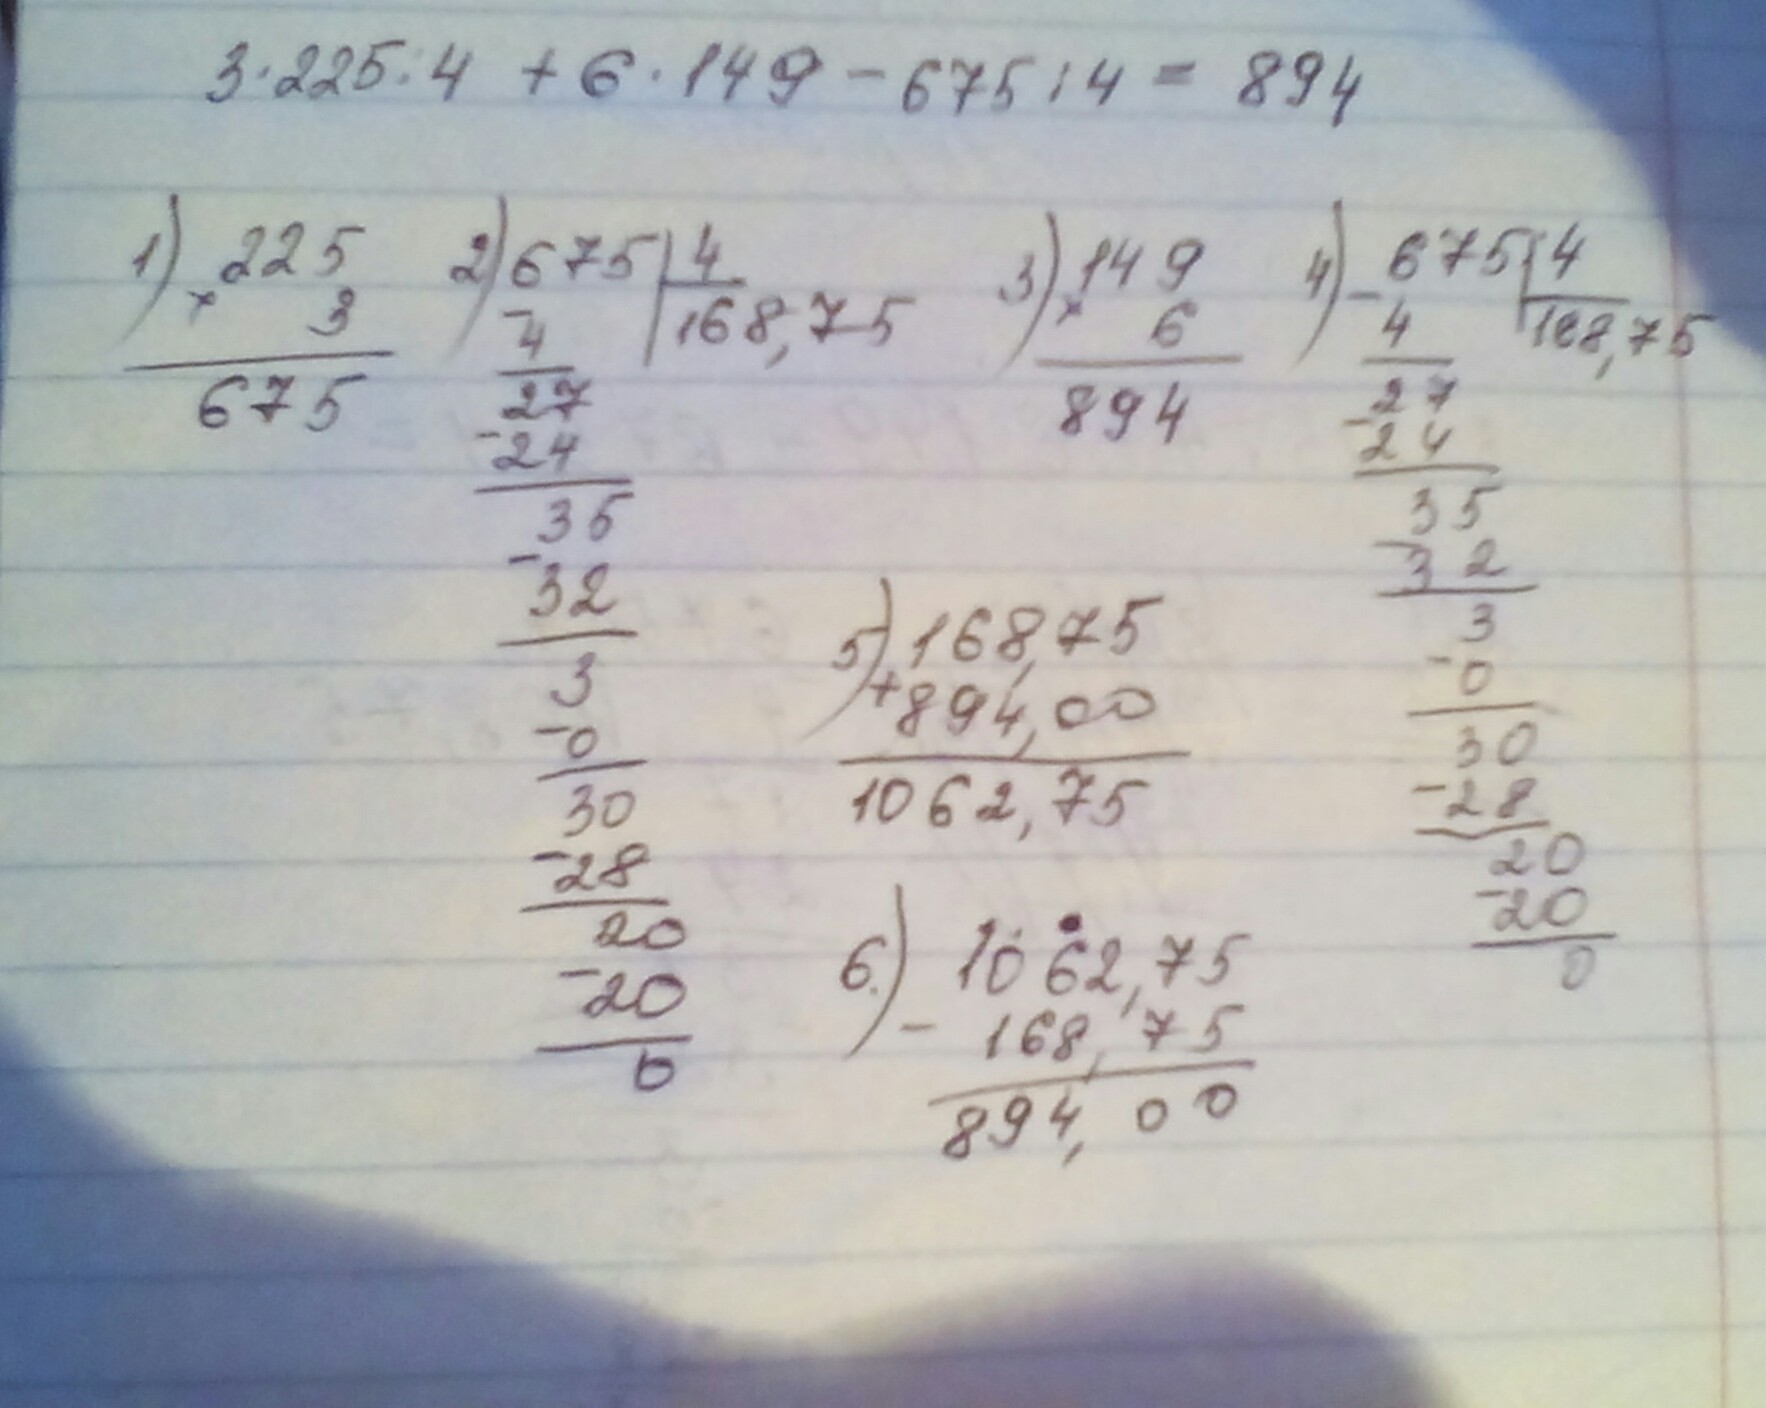 3·225:4 + 6·149 - 675:4 = 894
1) 225
× 3
675
2) 675 | 4
168,75
- 4
27
- 24
35
- 32
3
- 0
30
- 28
20
- 20
0
3) 149
× 6
894
4) 675 | 4
168,75
- 4
27
- 24
35
- 32
3
- 0
30
- 28
20
- 20
0
5) 168,75
+ 894,00
1062,75
6.) 1062,75
- 168,75
894,00